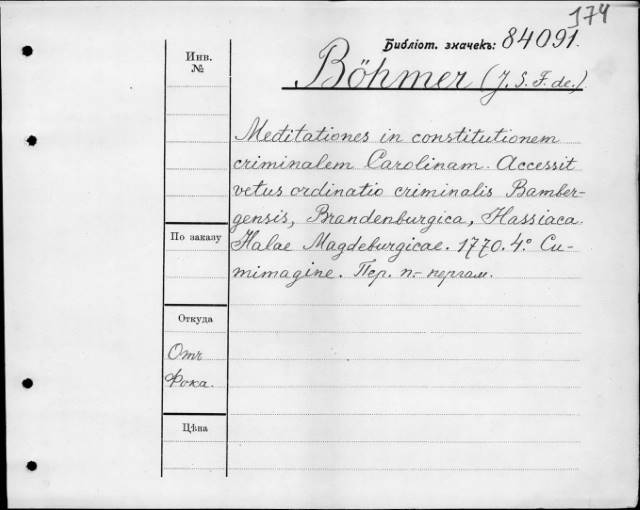 174
Библіот. значекъ: 84091.
Инв.
№
Böhmer (J. S. F. de.)
Meditationes in constitutionem
criminalem Carolinam. Accessit
vetus ordinatio criminalis Bamber-
gensis, Brandenburgica, Hassiaca.
По заказу
Halae Magdeburgicae. 1770. 4° Cu-
mimagine. Пер. п.- пергам.
Откуда
Отъ
Фока.
Цѣна